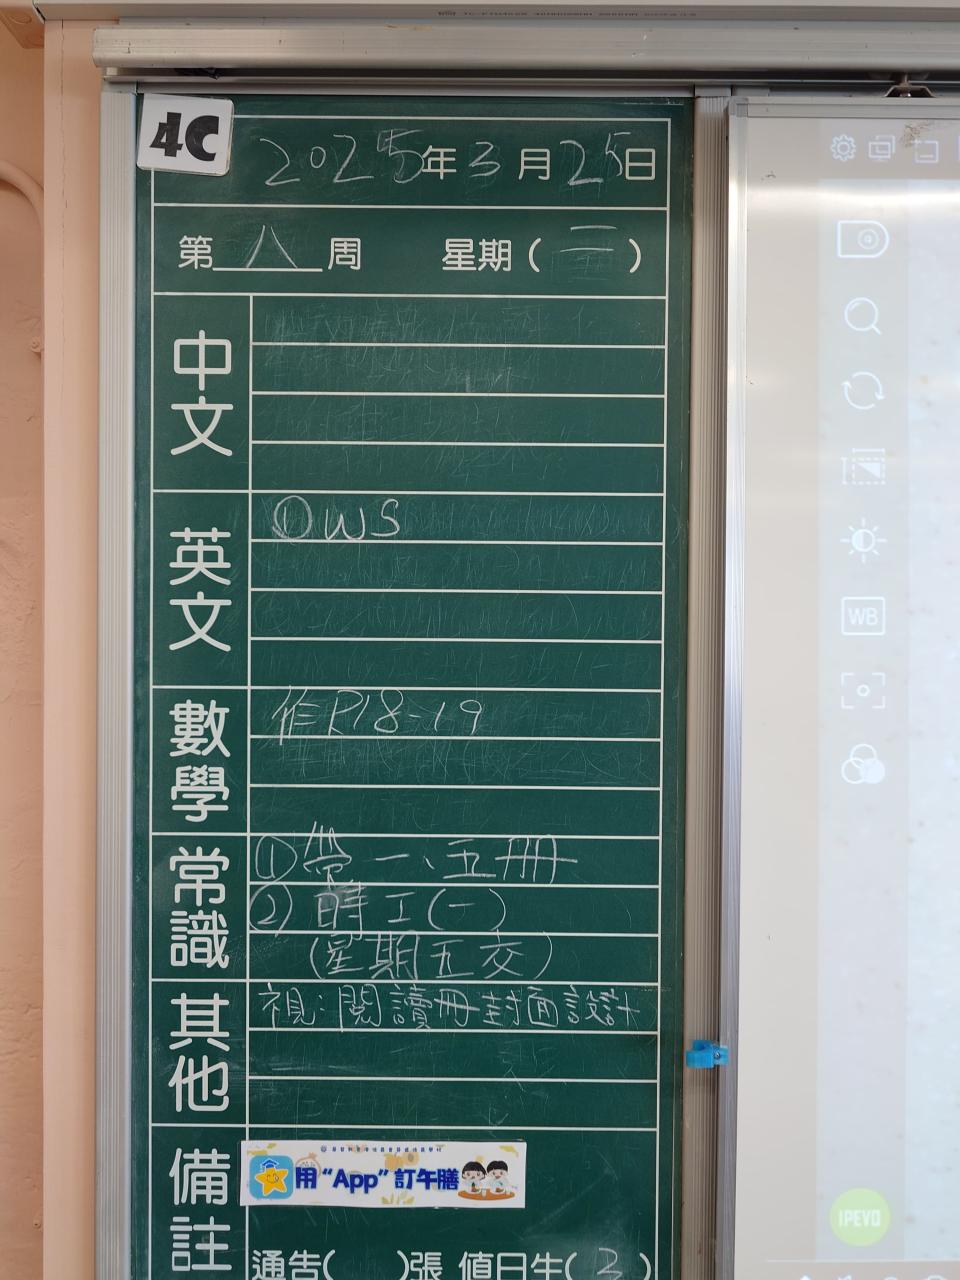 4C
2025年3月25日
第八周 星期(二)
中文
英文
①WS
數學
作P.18-19
常識
①常一、五冊
②時工(一)
(星期五交)
其他
視:閱讀冊封面設計
備註
用“App”訂午膳
通告( )張 值日生(3)
WB
IPEVO